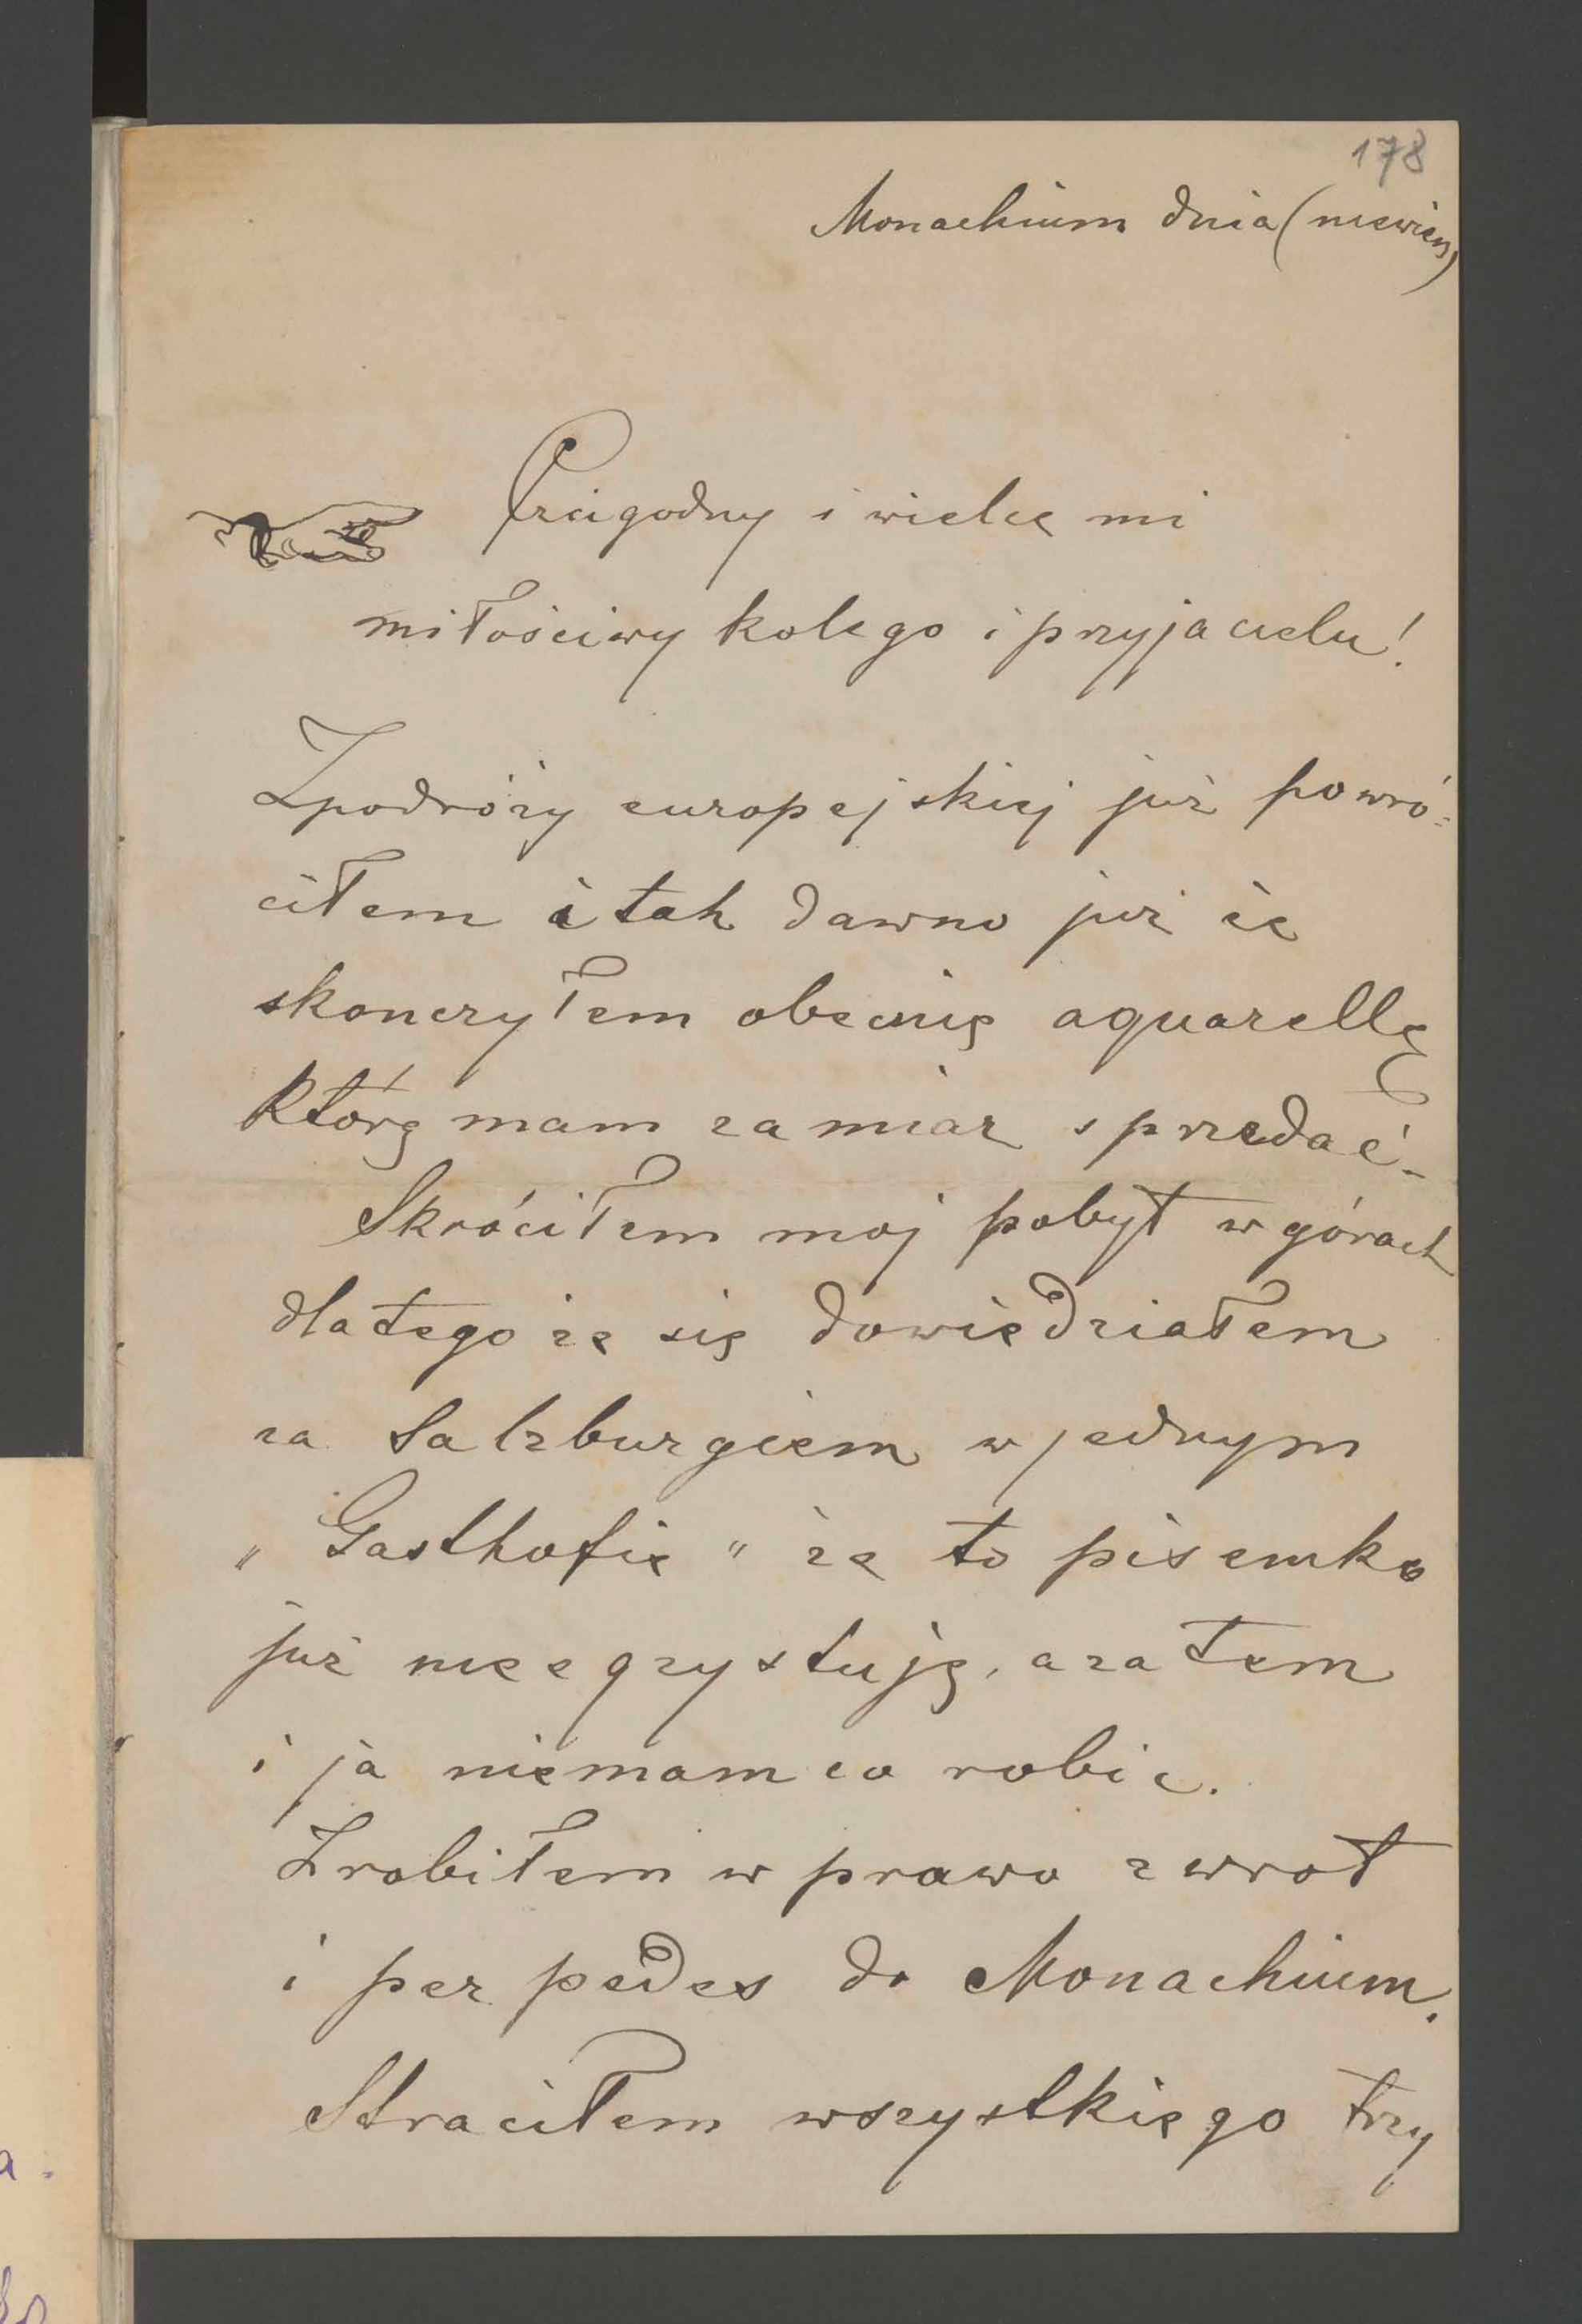 178
Monachium dnia (niewiem)
Czcigodny i wielce mi
miłościwy kolego i przyjacielu!
Zpodróży europejskiej już powró=
ciłem i tak dawno już że
skonczyłem obecnie aquarellę
którą mam zamiar sprzedać_
Skróciłem moj pobyt w górach
dlatego że się dowiedziałem
za Salzburgiem w jednym
„Gasthofie" że to pisemko
już nie egzystuję, a zatem
i ja niemam co robic.
Zrobiłem w prawo zwrot
i per pedes do Monachium.
Straciłem wszystkiego trzy